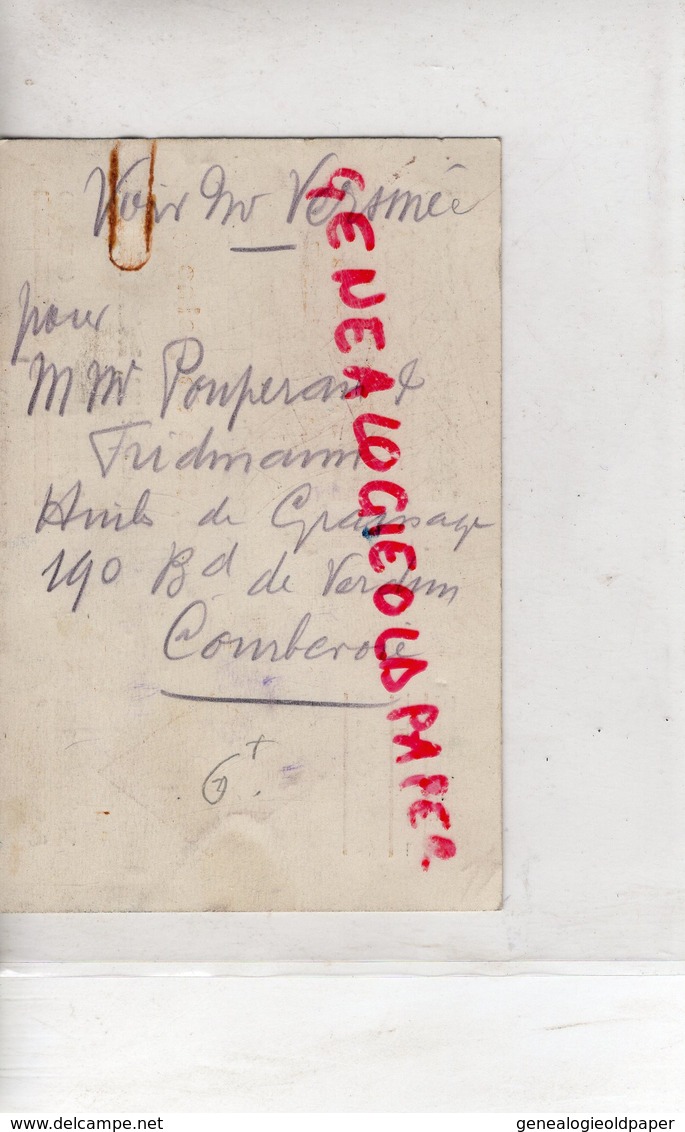 Voir Mr Versmée
pour
M Mr Pouperon &
Fridmann
Huiles de Graissage
190 Bd de Verdun
Courbevoie
6+
GENEALOGIEOLDPAPER
delcampe.net
genealogieoldpaper